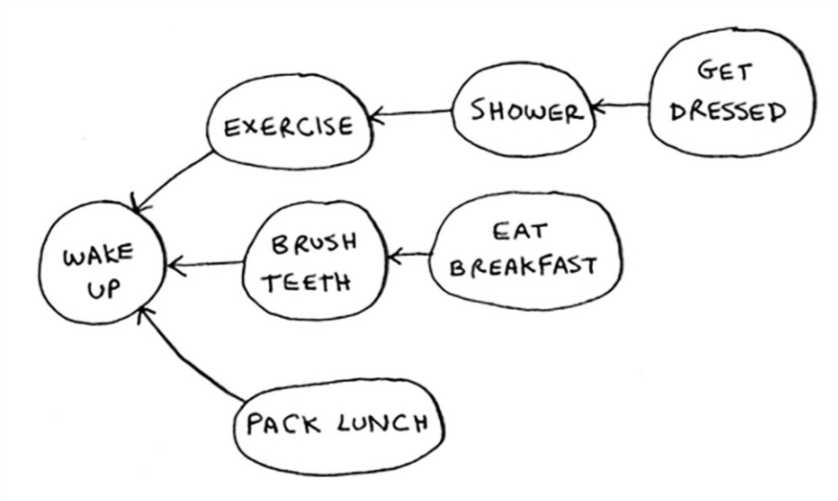 GET
DRESSED
SHOWER
EXERCISE
WAKE
UP
BRUSH
TEETH
EAT
BREAKFAST
PACK LUNCH